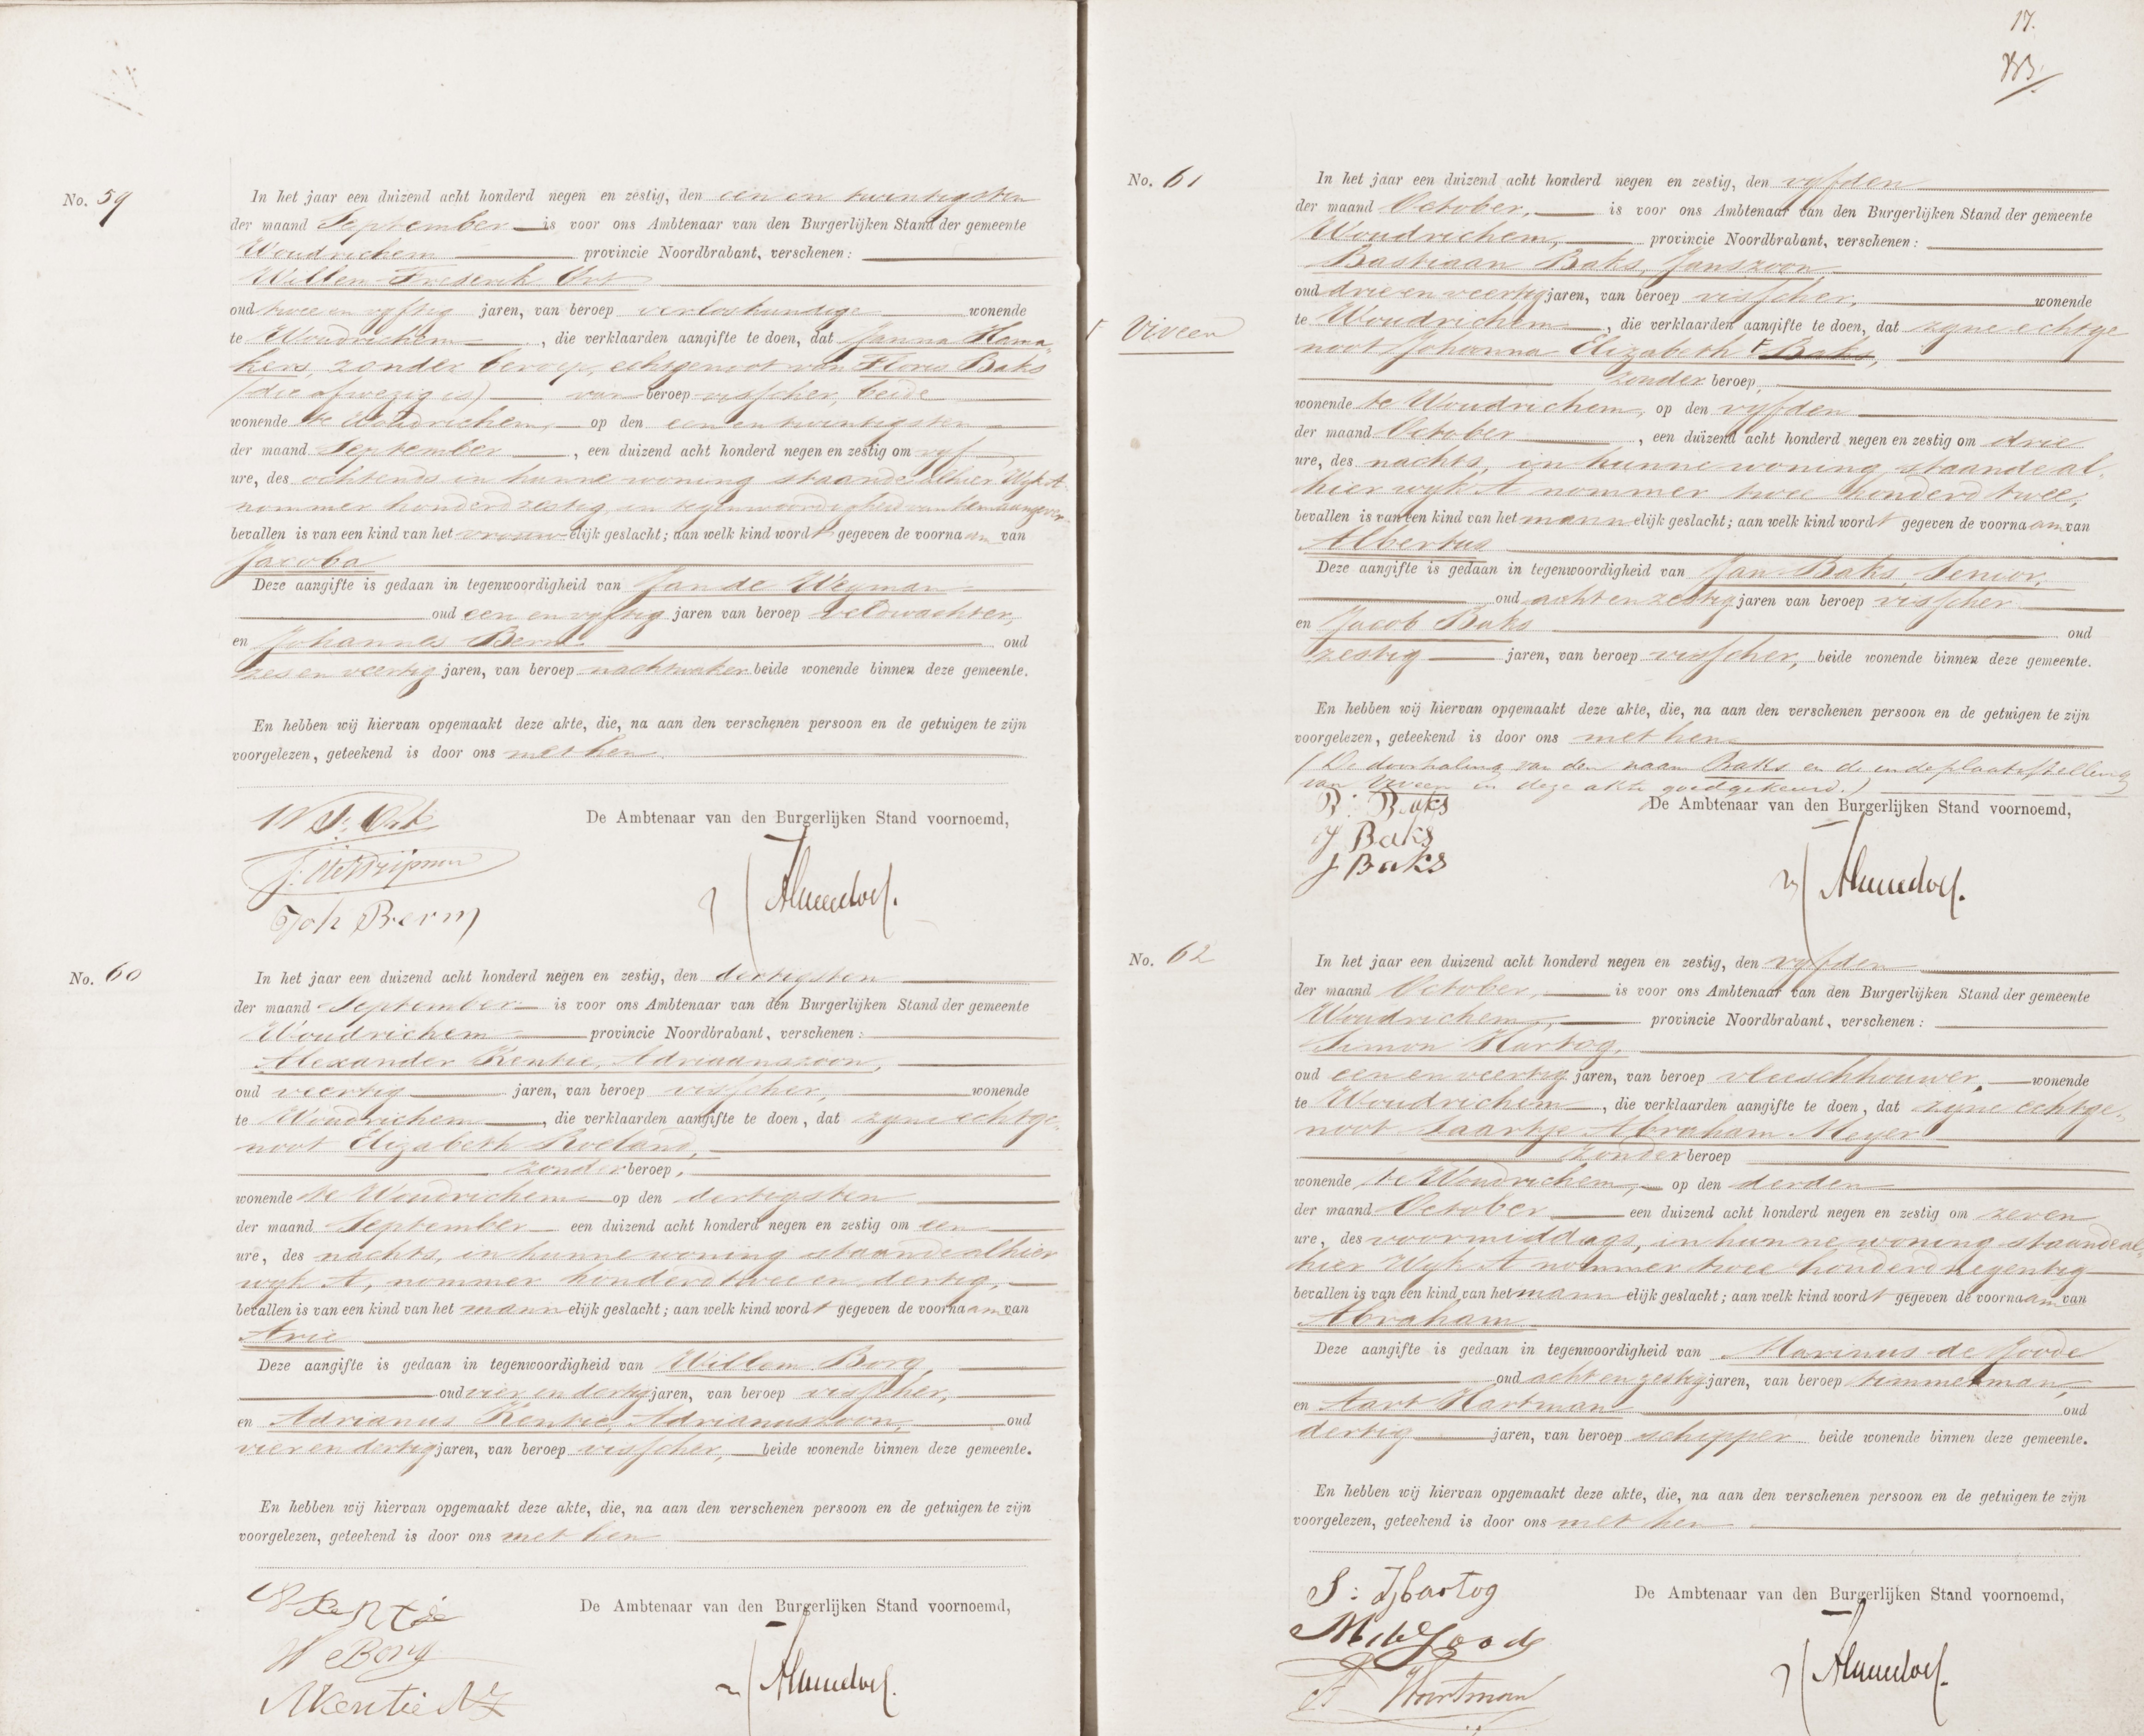 No. 59
In het jaar een duizend acht honderd negen en zestig, den een en twintigsten
der maand September is voor ons Ambtenaar van den Burgerlijken Stand der gemeente
Woudrichem provincie Noordbrabant, verschenen:
Willem Frederik Ort
oud twee en vyftig jaren, van beroep verloskundige wonende
te Woudrichem, die verklaarden aangifte te doen, dat Janna Hama-
kers, zonder beroep, echtgenoot van Floris Baks
(die afwezig is) van beroep visscher, beide
wonende te Woudrichem, op den een en twintigsten
der maand September, een duizend acht honderd negen en zestig om vyf
ure, des ochtends in hunne woning staande alhier Wyk A.
nommer honderd zestig, in tegenwoordigheid van hem aangever
bevallen is van een kind van het vrouwelijk geslacht; aan welk kind wordt gegeven de voornaam van
Jacoba
Deze aangifte is gedaan in tegenwoordigheid van Jan de Weyman
oud een en vyftig jaren van beroep veldwachter,
en Johannes Berm oud
zes en veertig jaren, van beroep nachtwaker beide wonende binnen deze gemeente.
En hebben wij hiervan opgemaakt deze akte, die, na aan den verschenen persoon en de getuigen te zijn
voorgelezen, geteekend is door ons met hen.
De Ambtenaar van den Burgerlijken Stand voornoemd,
W F: Ort
Joh Berm
No. 60
In het jaar een duizend acht honderd negen en zestig, den dertigsten
der maand September is voor ons Ambtenaar van den Burgerlijken Stand der gemeente
Woudrichem provincie Noordbrabant, verschenen:
Alexander Kentie, Adriaanszoon,
oud veertig jaren, van beroep visscher, wonende
te Woudrichem, die verklaarden aangifte te doen, dat zyne echtge-
noot Elizabeth Roeland,
zonder beroep,
wonende te Woudrichem op den dertigsten
der maand September een duizend acht honderd negen en zestig om een
ure, des nachts, in hunne woning staande alhier
wyk A, nommer honderd twee en dertig,
bevallen is van een kind van het mannelijk geslacht; aan welk kind wordt gegeven de voornaam van
Arie
Deze aangifte is gedaan in tegenwoordigheid van Willem Borg,
oud vier en dertig jaren, van beroep visscher,
en Adrianus Kentie, Adrianuszoon, oud
vier en dertig jaren, van beroep visscher, beide wonende binnen deze gemeente.
En hebben wij hiervan opgemaakt deze akte, die, na aan den verschenen persoon en de getuigen te zijn
voorgelezen, geteekend is door ons met hen
De Ambtenaar van den Burgerlijken Stand voornoemd,
A Kentie
W Borg
A Kentie AZ
17.
No. 61
In het jaar een duizend acht honderd negen en zestig, den vyfden
der maand October, is voor ons Ambtenaar van den Burgerlijken Stand der gemeente
Woudrichem, provincie Noordbrabant, verschenen:
Bastiaan Baks, Janszoon,
oud drie en veertig jaren, van beroep visscher, wonende
te Woudrichem, die verklaarden aangifte te doen, dat zyne echtge
Viveen
noot Johanna Elizabeth Baks,
zonder beroep,
wonende te Woudrichem, op den vyfden
der maand October, een duizend acht honderd negen en zestig om drie
ure, des nachts, in hunne woning staande al-
hier wyk A nommer twee honderd twee,
bevallen is van een kind van het mannelijk geslacht; aan welk kind wordt gegeven de voornaam van
Albertus
Deze aangifte is gedaan in tegenwoordigheid van Jan Baks, Senior,
oud acht en zestig jaren van beroep visscher
en Jacob Baks oud
zestig jaren, van beroep visscher, beide wonende binnen deze gemeente.
En hebben wij hiervan opgemaakt deze akte, die, na aan den verschenen persoon en de getuigen te zijn
voorgelezen, geteekend is door ons met hen
(De doorhaling van den naam Baks en de indeplaatsstelling
van Viveen in deze akte goedgekeurd.)
De Ambtenaar van den Burgerlijken Stand voornoemd,
B: Baks
J Baks
J Baks
No. 62
In het jaar een duizend acht honderd negen en zestig, den vyfden
der maand October, is voor ons Ambtenaar van den Burgerlijken Stand der gemeente
Woudrichem, provincie Noordbrabant, verschenen:
Simon Hartog,
oud een en veertig jaren, van beroep vleeschhouwer, wonende
te Woudrichem, die verklaarden aangifte te doen, dat zijne echtge-
noot Saartje Abraham Meyer
zonder beroep
wonende te Woudrichem, op den derden
der maand October een duizend acht honderd negen en zestig om zeven
ure, des voormiddags, in hunne woning staande al-
hier Wyk A nommer twee honderd negentig
bevallen is van een kind van het mannelijk geslacht; aan welk kind wordt gegeven de voornaam van
Abraham
Deze aangifte is gedaan in tegenwoordigheid van Marinus de Joode
oud acht en zestig jaren, van beroep timmerman,
en Aart Hartman oud
dertig jaren, van beroep schipper beide wonende binnen deze gemeente.
En hebben wij hiervan opgemaakt deze akte, die, na aan den verschenen persoon en de getuigen te zijn
voorgelezen, geteekend is door ons met hen
De Ambtenaar van den Burgerlijken Stand voornoemd,
S: Hartog
M de Joode
A Hartman